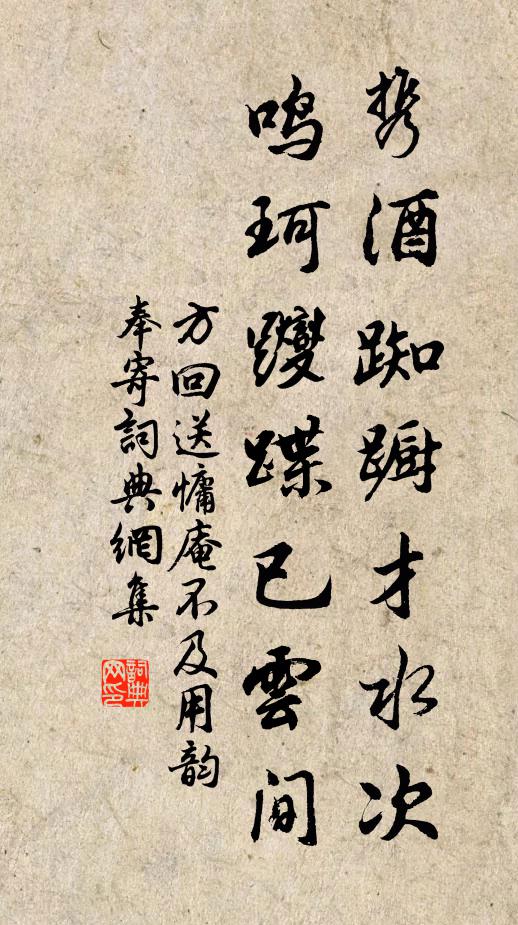 携酒踟蹰才水次
鸣珂躞蹀已雲间
方回送慵庵不及用韵
奉寄詞典網集
詞典网印